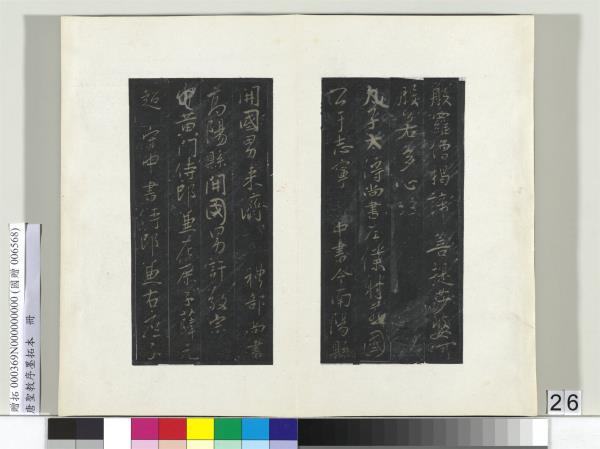 般羅僧揭諦 菩提莎婆呵
般若多心經
太子太傅尚書左僕射燕國
公于志寧 中書令南陽縣
開國男來濟 禮部尚書
高陽縣開國男許敬宗
守黃門侍郎兼左庶子薛元
超 守中書侍郎兼右庶子
贈拓 000369N000000000 (國贈 006568)
唐聖教序墨拓本 冊
26